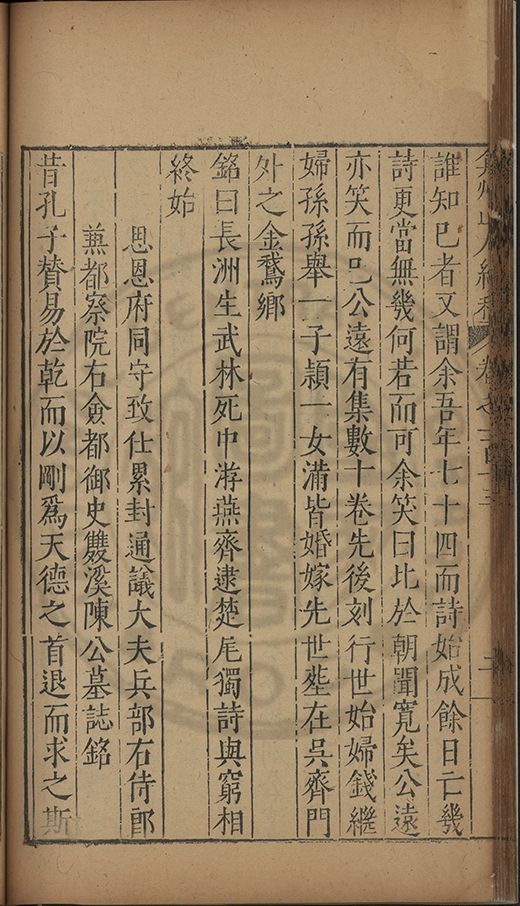 弇州山人續稿 卷之一百十三
誰知已者又謂余吾年七十四而詩始成餘日亡幾
詩更當無幾何若而可余笑曰比於朝聞寬矣公遠
亦笑而已公遠有集數十卷先後刻行世始婦錢繼
婦孫孫舉一子頴一女滿皆婚嫁先世塋在吳齊門
外之金鵞鄉
銘曰長洲生武林死中游燕齊逮楚尾獨詩與窮相
終始
思恩府同守致仕累封通議大夫兵部右侍郎
蕪都察院右僉都御史雙溪陳公墓誌銘
昔孔子賛易於乾而以剛爲天德之首退而求之斯